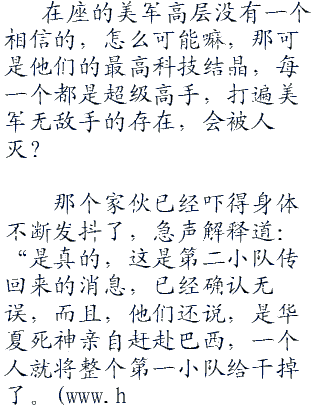 在座的美军高层没有一个
相信的，怎么可能嘛，那可
是他们的最高科技结晶，每
一个都是超级高手，打遍美
军无敌手的存在，会被人
灭？
那个家伙已经吓得身体
不断发抖了，急声解释道：
“是真的，这是第二小队传
回来的消息，已经确认无
误，而且，他们还说，是华
夏死神亲自赶赴巴西，一个
人就将整个第一小队给干掉
了。(www.h